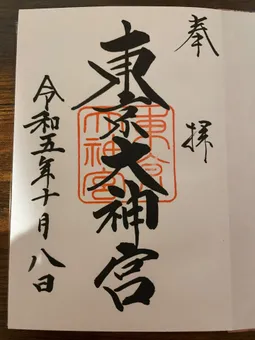 奉拝
東京大神宮
令和五年十月八日
東京大神宮